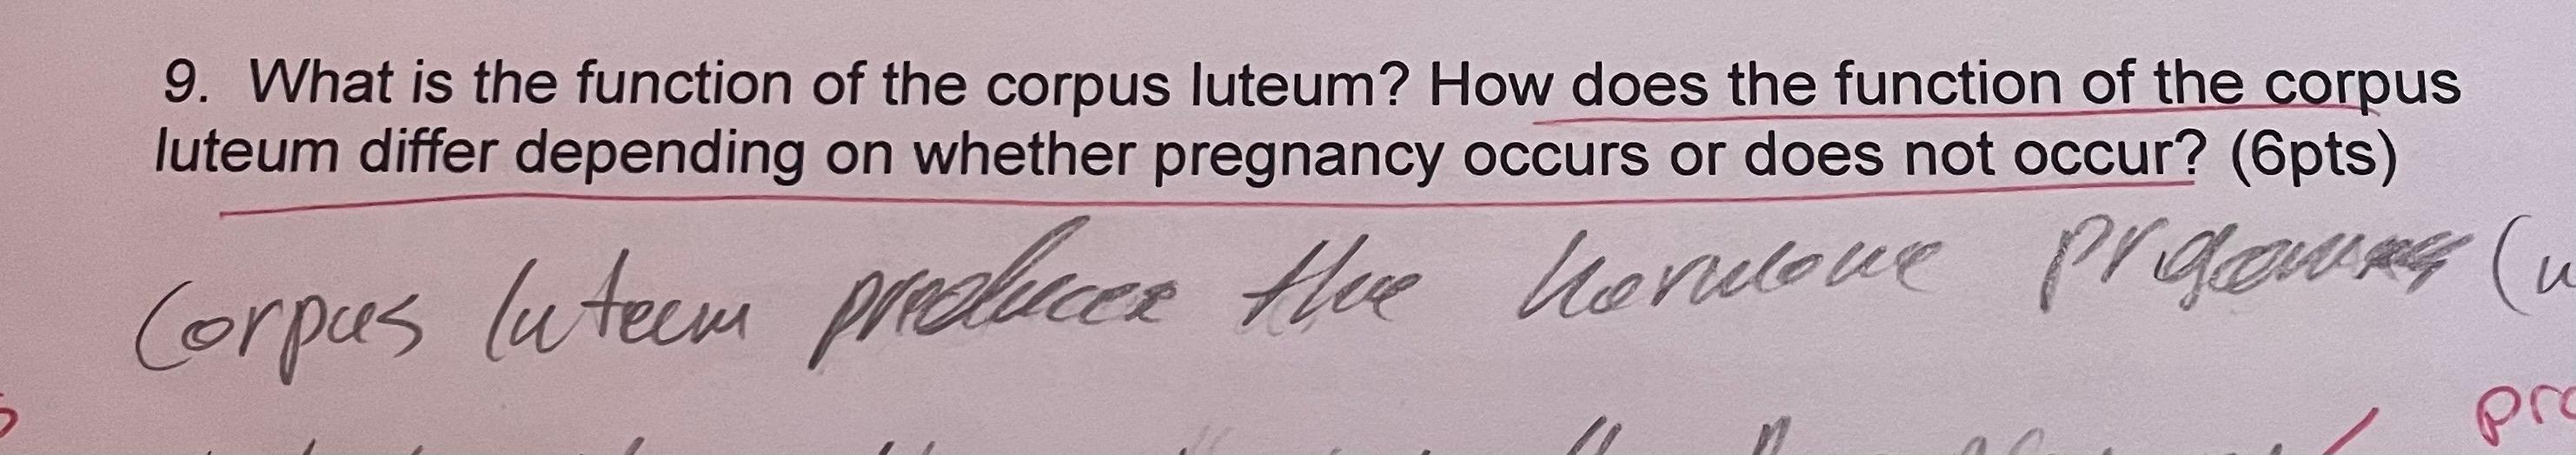 9. What is the function of the corpus luteum? How does the function of the corpus
luteum differ depending on whether pregnancy occurs or does not occur? (6pts)
Corpus luteum produces the hormone
pro